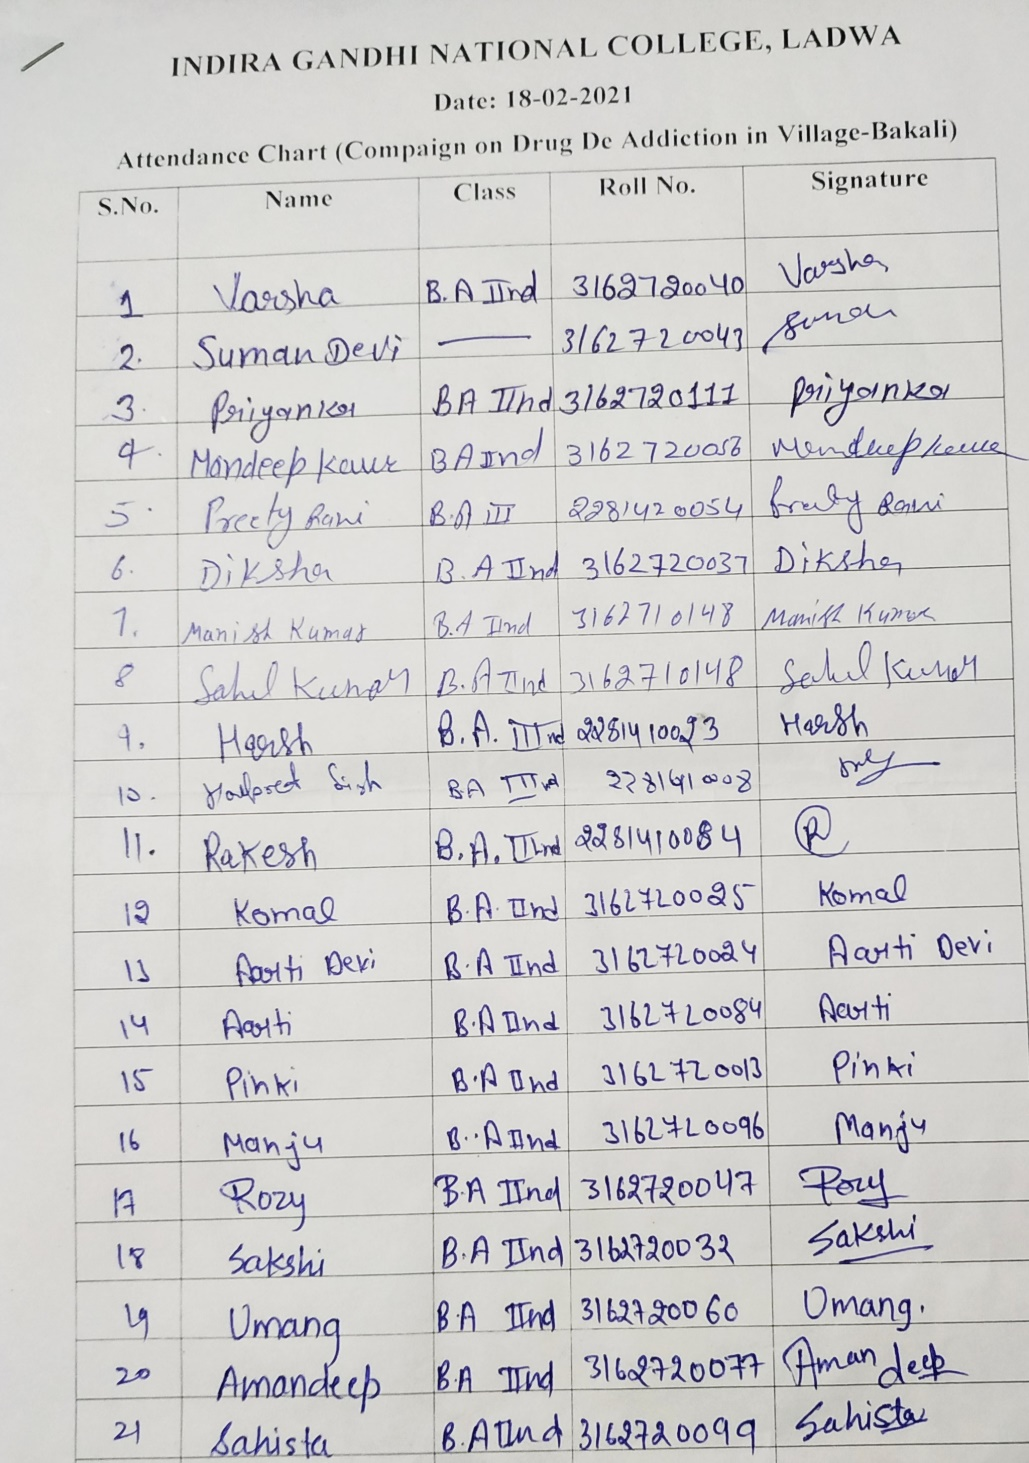 INDIRA GANDHI NATIONAL COLLEGE, LADWA
Date: 18-02-2021
Attendance Chart (Compaign on Drug De Addiction in Village-Bakali)
S.No. Name Class Roll No. Signature
1 Varsha B.A IInd 3162720040 Varsha
2. Suman Devi — 3162720043 Suman
3. Priyanka BA IInd 3162720111 Priyanka
4. Mandeep Kaur BA IInd 3162720056 Mandeep Kaur
5. Preety Rani B.A III 2281420054 Preety Rani
6. Diksha B.A IInd 3162720037 Diksha
7. Manish Kumar B.A IInd 3162710148 Manish Kumar
8 Sahil Kumar B.A IInd 3162710148 Sahil Kumar
9. Harsh B.A. IIIrd 2281410023 Harsh
10. BA
11. Rakesh B.A. 2281410084 R
12 Komal B.A. IInd 3162720025 Komal
13 Aarti Devi B.A IInd 3162720024 Aarti Devi
14 Aarti B.A IInd 3162720084 Aarti
15 Pinki B.A IInd 3162720013 Pinki
16 Manju B.A IInd 3162720096 Manju
17 Rozy B.A IInd 3162720047 Rozy
18 Sakshi B.A IInd 3162720032 Sakshi
19 Umang B.A IInd 3162720060 Umang.
20 Amandeep B.A IInd 3162720077 Amandeep
21 Sahista B.A IInd 3162720099 Sahista